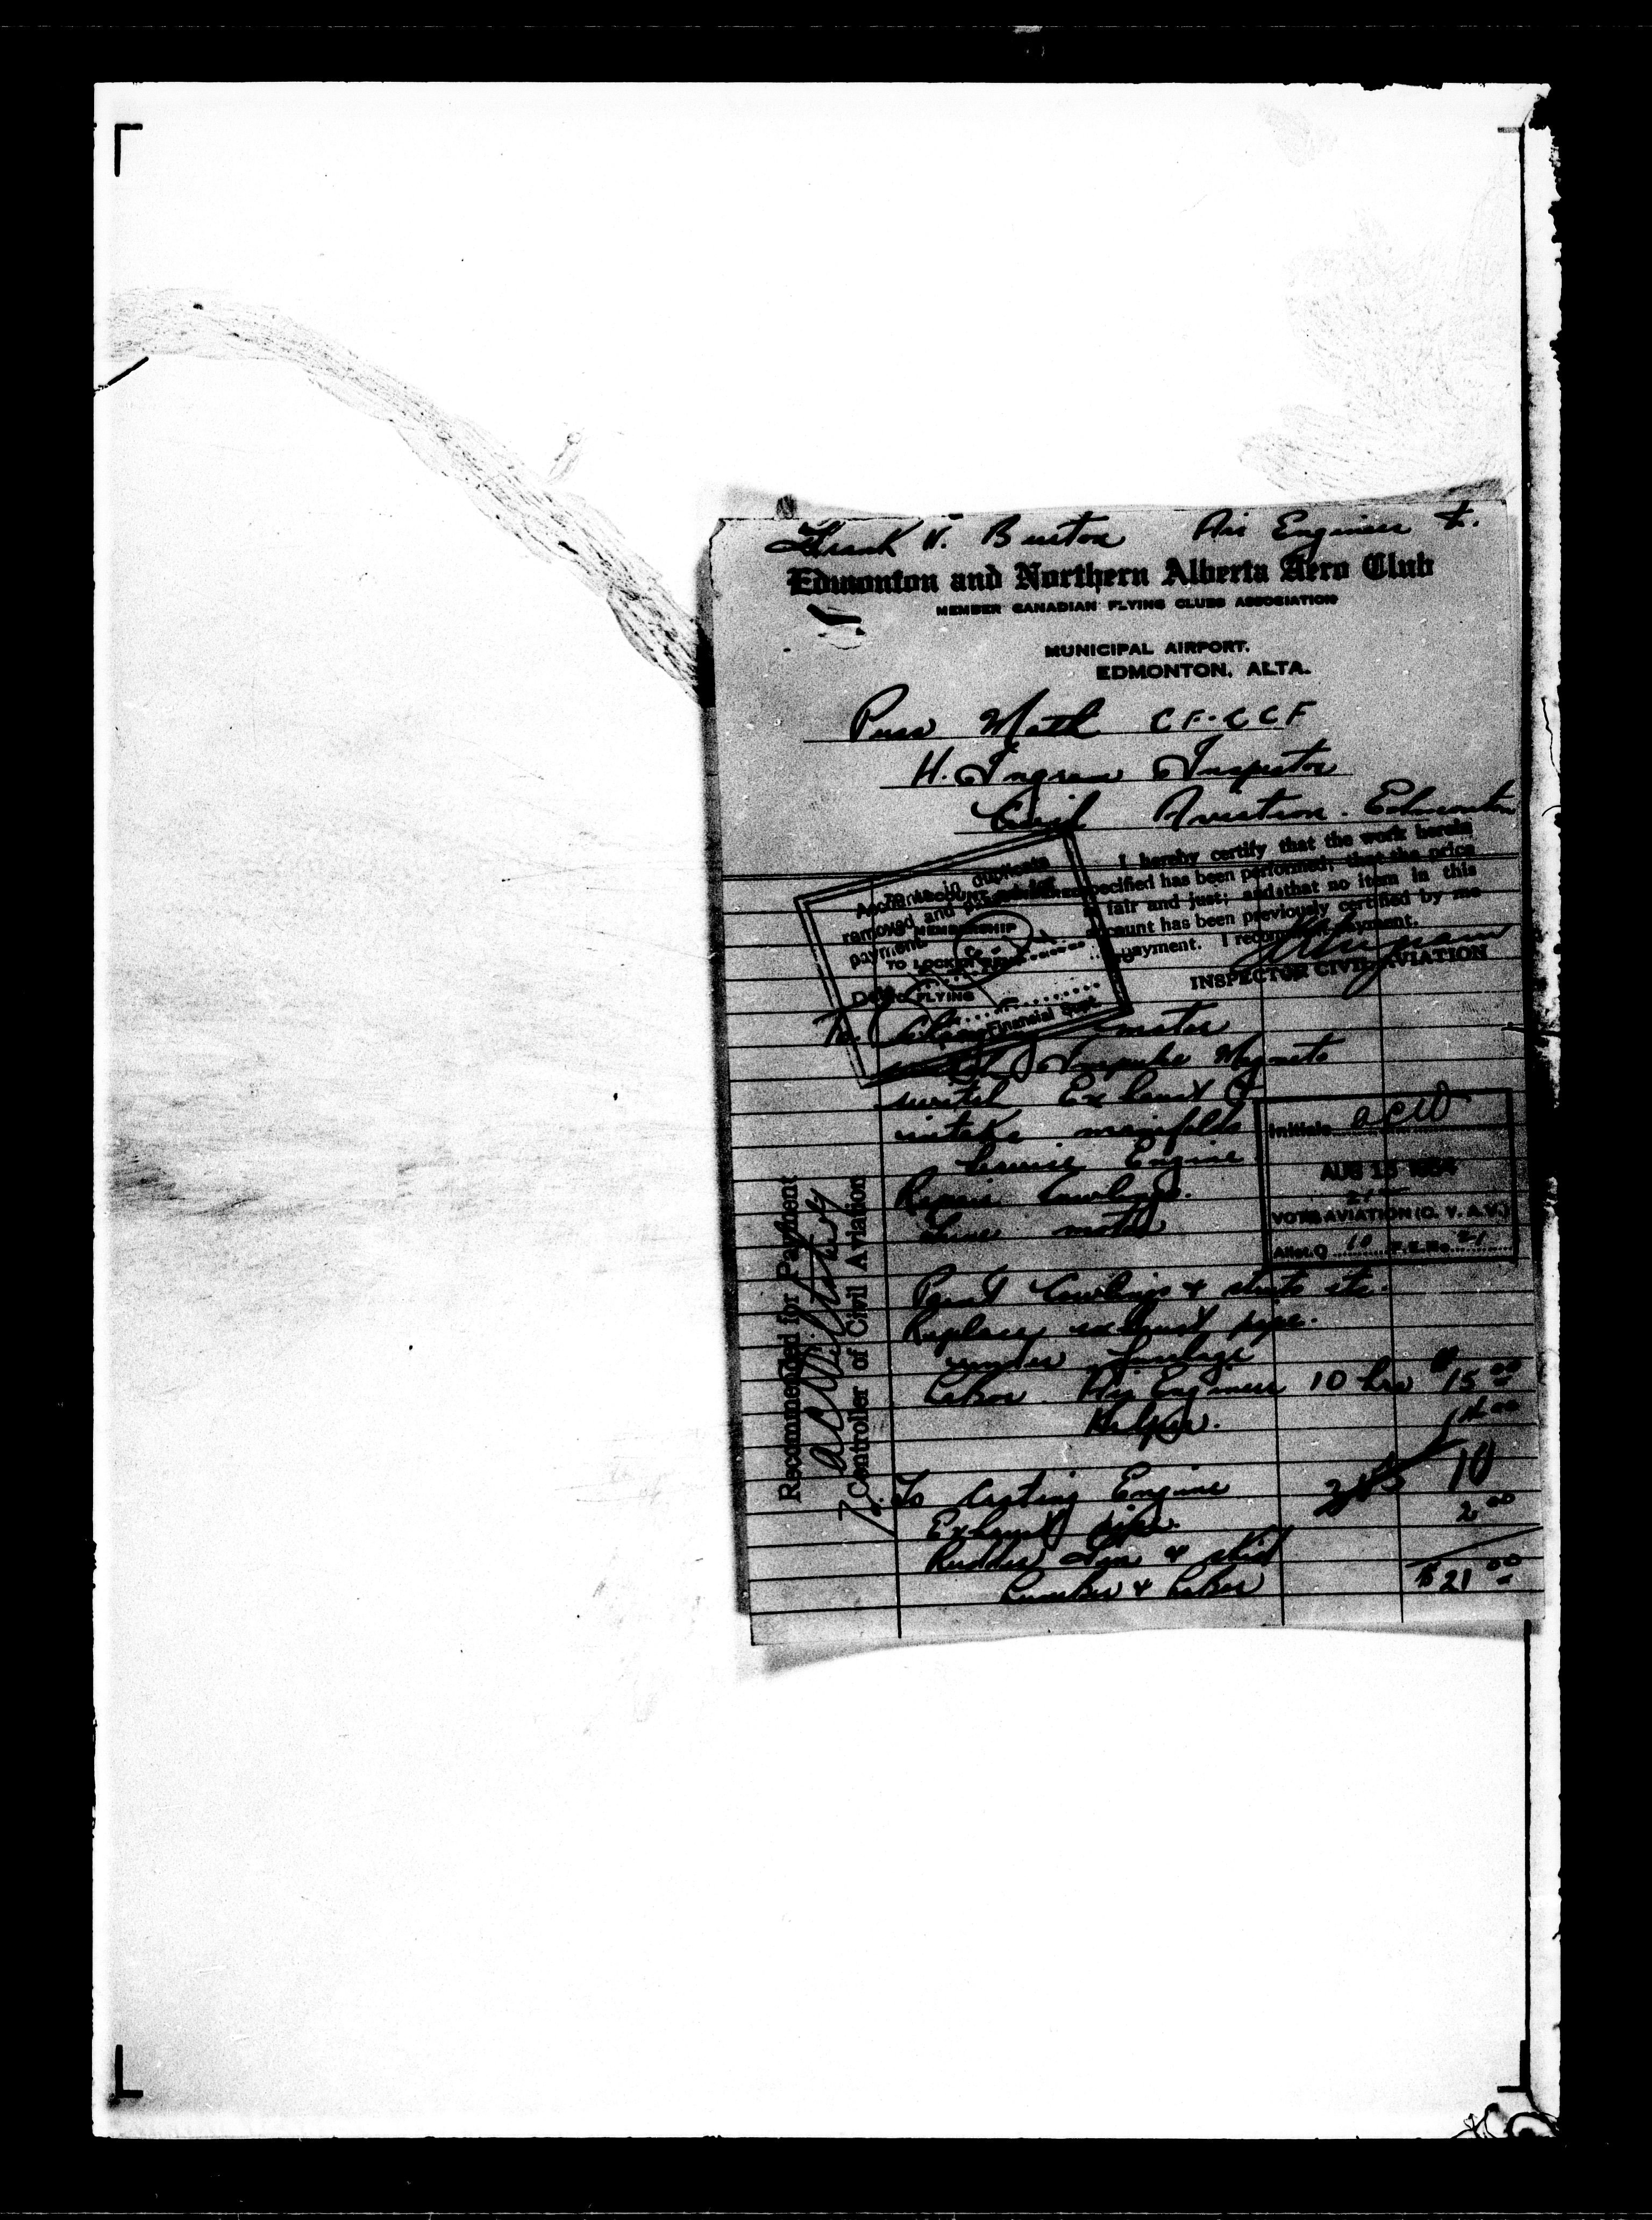 Frank W. Burton Air Engineer
Edmonton and Northern Alberta Aero Club
MEMBER CANADIAN FLYING CLUBS ASSOCIATION
MUNICIPAL AIRPORT.
EDMONTON, ALTA.
Puss Moth CF-CCF
H. Ingram Inspector
Civil Aviation. Edmonton
I hereby certify that the work herein
specified has been performed; that the price
is fair and just; and that no item in this
account has been previously certified by me
payment. I recommend payment.
INSPECTOR CIVIL AVIATION
in duplicate
removed and
payment
MEMBERSHIP
TO LOCKER RENT
FLYING
Financial
To motor
Impulse Magneto
switch Exhaust &
intake manifolds
Engine
Repair Cowlings.
motor
Initials ACW
AUG 15 1934
VOTE AVIATION (C. V. A. V.)
Allot. 10 F.E. No. 21
Paint Cowlings & struts etc.
Replace exhaust pipe.
under fuselage
Labor Air Engineer 10 hrs $15.00
Helper.
To testing Engine
Exhaust pipe. 2.00
Rudder & skid
Lumber & Labor $21.00
Recommended for Payment
Controller of Civil Aviation